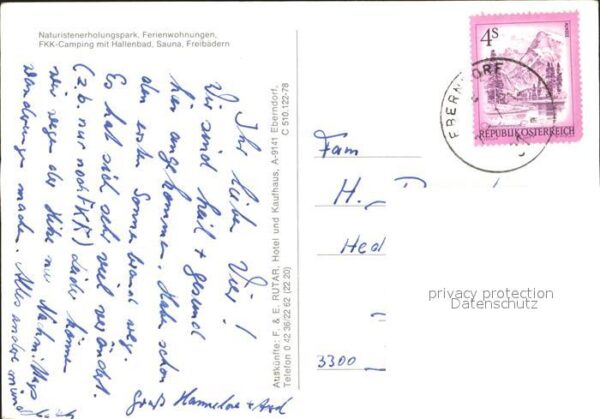 Naturistenerholungspark, Ferienwohnungen,
FKK-Camping mit Hallenbad, Sauna, Freibädern
Ihr lieben Vier!
Wir sind heil + gesund
hier angekommen. Habe schon
den ersten Sonnenbrand weg.
Es hat sich sehr viel verändert.
(z.b. nur noch FKK) Leider können
wir wegen der Hitze nur Nachm.
Wanderungen machen. Alles andere mündl
Gruß Hannelore + Axel
Auskünfte: F. & E. RUTAR, Hotel und Kaufhaus, A-9141 Eberndorf,
Telefon 0 42 36/22 62 (22 20)
C 519.122-78
4S
ALMSEE
REPUBLIK ÖSTERREICH
EBERNDORF
Fam
H.
Hed
3300
privacy protection
Datenschutz